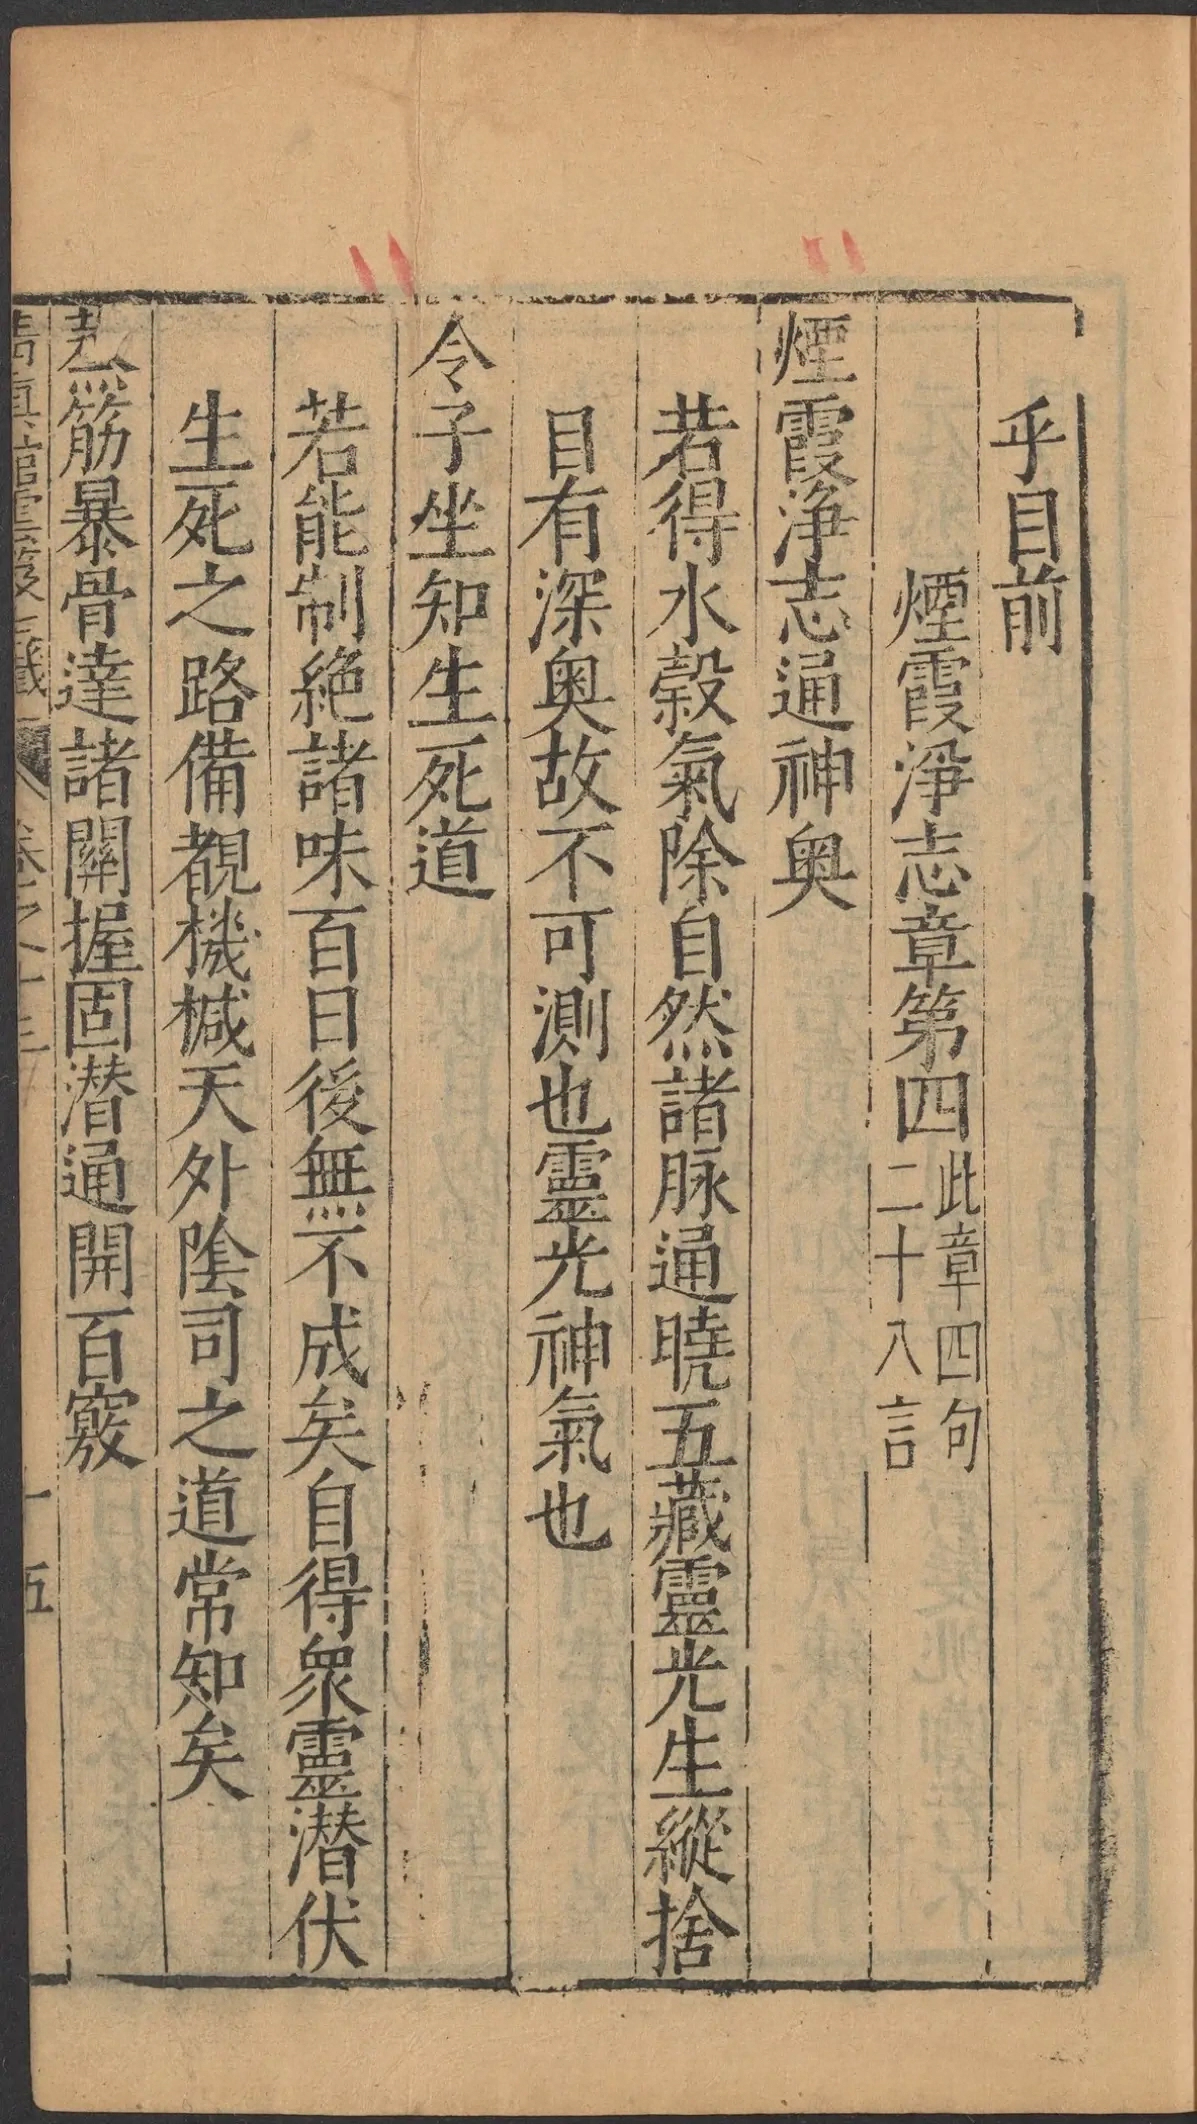 乎目前
煙霞淨志章第四 此章四句二十八言
煙霞淨志通神奥
若得水穀氣除自然諸脉通曉五藏靈光生縱捨
目有深奥故不可測也靈光神氣也
令子坐知生死道
若能制絶諸味百日後無不成矣自得衆靈潜伏
生死之路備覩機椷天外隂司之道常知矣
𤎅筋暴骨達諸關握固潜通開百竅
卷之十三
十五